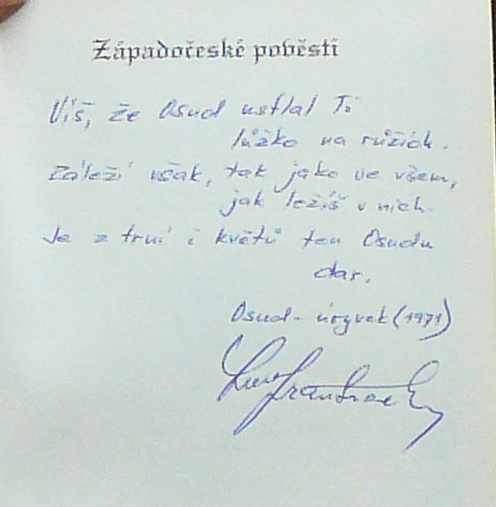 Západočeské pověsti
Víš, že Osud ustlal Ti
lůžko na růžích.
Záleží však, tak jako ve všem,
jak ležíš v nich.
Je z trní i květů ten Osudu
dar.
Osud - úryvek (1971)